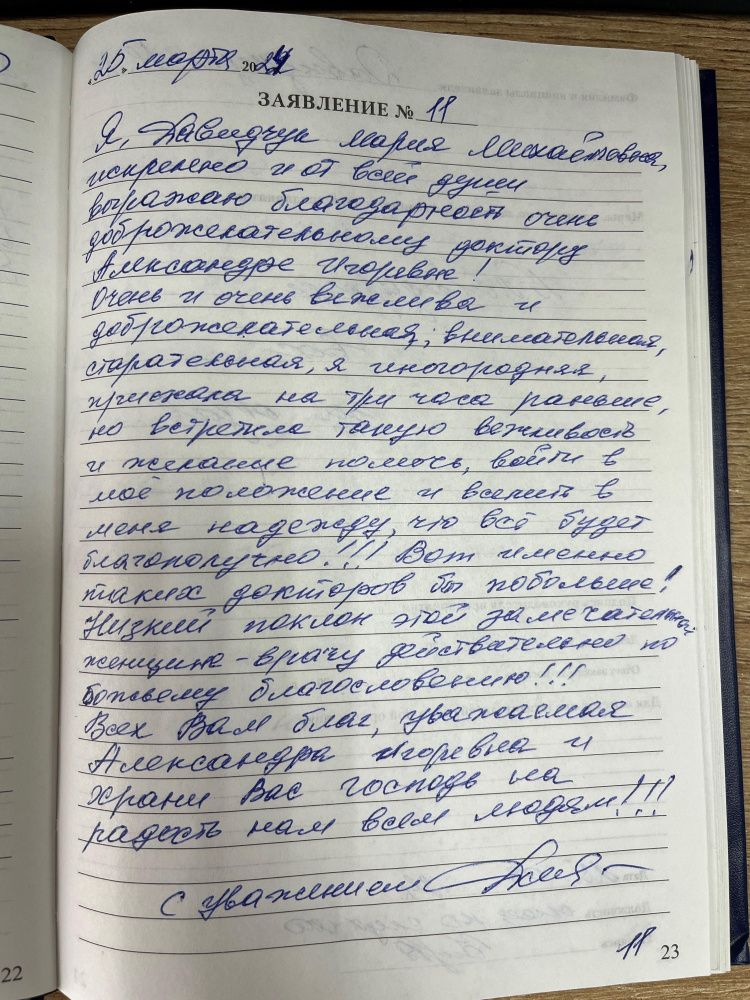 «25» марта 2024
ЗАЯВЛЕНИЕ № 11
Я, Давидчук Мария Михайловна,
искренно и от всей души
выражаю благодарность очень
доброжелательному доктору
Александре Игоревне!
Очень и очень вежлива и
доброжелательная, внимательная,
старательная, я иногородняя,
приехала на три часа раньше,
но встретила такую вежливость
и желание помочь, войти в
моё положение и вселить в
меня надежду, что всё будет
благополучно!!! Вот именно
таких докторов бы побольше!
Низкий поклон этой замечательной
женщине-врачу действительно по
божьему благословению!!!
Всех Вам благ, уважаемая
Александра Игоревна и
храни Вас господь на
радость нам всем людям!!!
С уважением
11
22
23